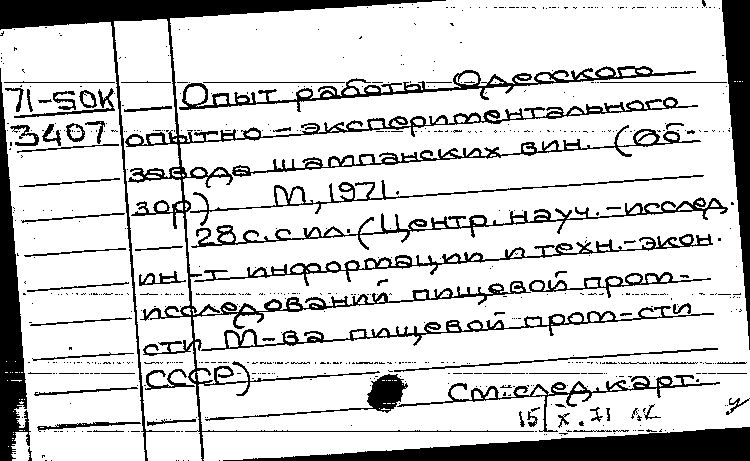 71-50К Опыт работы Одесского
3407 опытно-экспериментального
завода шампанских вин. (Об-
зор). М., 1971.
28 с. с ил. (Центр. науч.-исслед.
ин-т информации и техн.-экон.
исследований пищевой пром-
сти М-ва пищевой пром-сти
СССР).
См. след. карт.
15/X.71